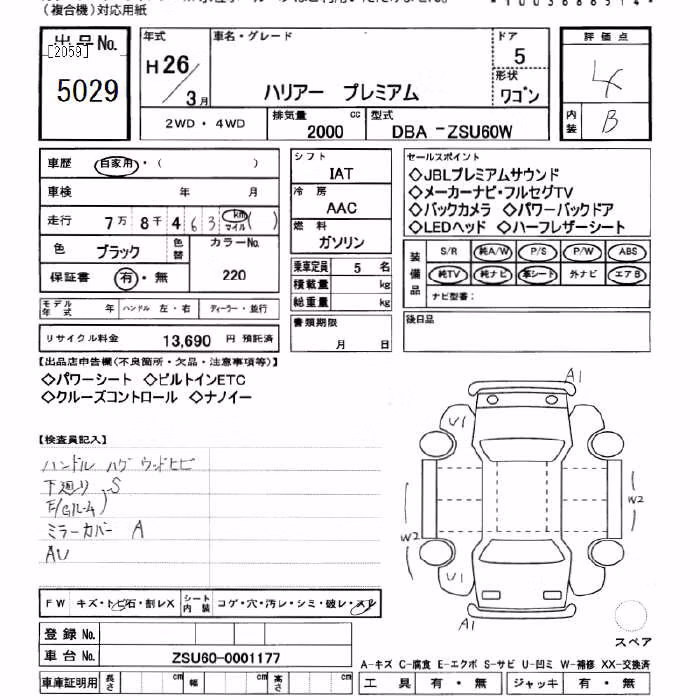 (複合機)対応用紙
出品No.
[2059]
5029
年式
H26/3月
車名・グレード
ハリアー プレミアム
ドア
5
形状
ワゴン
評価点
4
内装
B
2WD・4WD
排気量
2000 cc
型式
DBA -ZSU60W
車歴 自家用・( )
車検 年 月
走行 7万 8千 4 6 3 km マイル ( )
色 ブラック 色替
カラーNo.
220
保証書 有・無
モデル年式 年 ハンドル 左・右 ディーラー・並行
リサイクル料金 13,690 円 預託済
シフト
IAT
冷房
AAC
燃料
ガソリン
乗車定員 5 名
積載量 kg
総重量 kg
書類期限
月 日
セールスポイント
◇JBLプレミアムサウンド
◇メーカーナビ・フルセグTV
◇バックカメラ ◇パワーバックドア
◇LEDヘッド ◇ハーフレザーシート
装備品
S/R 純A/W P/S P/W ABS
純TV 純ナビ 革シート 外ナビ エアB
ナビ型番:
後日品
【出品店申告欄(不良箇所・欠品・注意事項等)】
◇パワーシート ◇ビルトインETC
◇クルーズコントロール ◇ナノイー
【検査員記入】
ハンドル ハゲ ウッドヒビ
下廻り S
E/Gルーム
ミラーカバー A
AU
A1
U1
W2
W2
U1
A1
スペア
FW キズ・トビ石・割レX シート内装 コゲ・穴・汚レ・シミ・破レ・スレ
登録No.
車台No. ZSU60-0001177
車庫証明用 長さ cm 幅 cm 高さ cm
A-キズ C-腐食 E-エクボ S-サビ U-凹ミ W-補修 XX-交換済
工具 有・無 ジャッキ 有・無